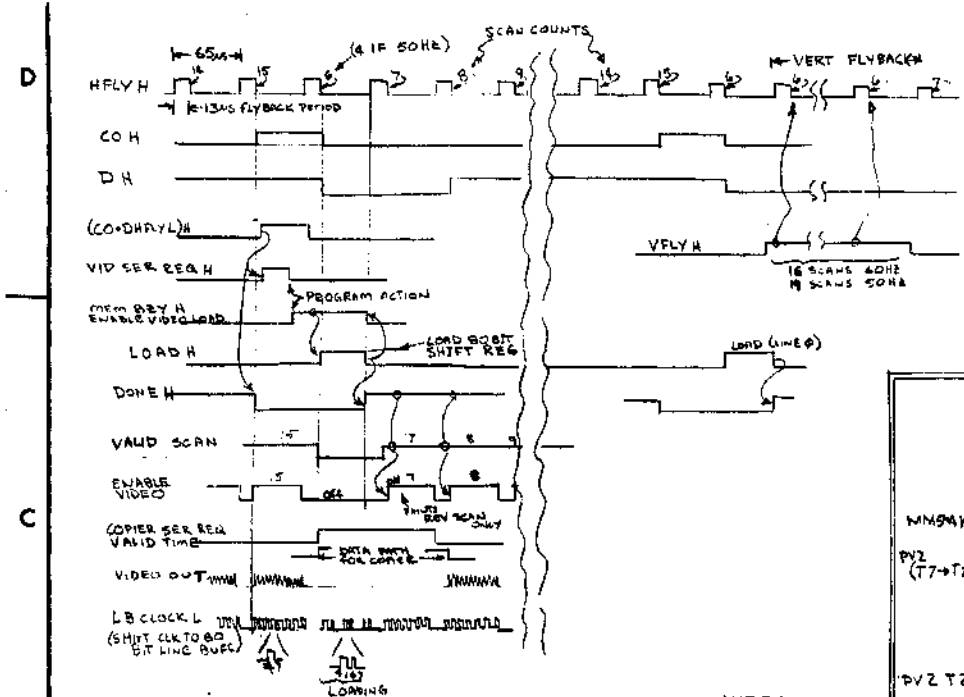 D
C
SCAN COUNTS
(4 IF 50HZ)
65us
VERT FLYBACK
HFLY H
14 15 6 7 8 9 14 15 6 6 6 7
13us FLYBACK PERIOD
CO H
D H
(CO•DHFLYL)H
VFLY H
16 SCANS 60HZ
19 SCANS 50HZ
VID SER REQ H
PROGRAM ACTION
MEM BZY H
ENABLE VIDEO LOAD
LOAD H
LOAD 80 BIT
SHIFT REG
LOAD (LINE 0)
DONE H
VALID SCAN
15 7 8 9
ENABLE
VIDEO
15 OFF 7 8
REV SCAN
ONLY
COPIER SER REQ
VALID TIME
DATA PATH
FOR COPIER
VIDEO OUT
LB CLOCK L
(SHIFT CLK TO 80
BIT LINE BUFF)
LOADING
PV2
PV2 T2